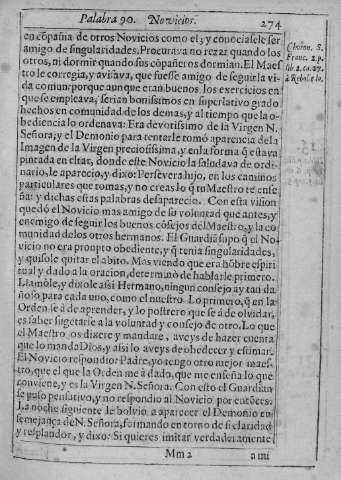 Palabra 90. Novicios. 274
en cōpañia de otros Novicios como el; y conociasele ser
amigo de singularidades. Procurava no rezar quando los
otros, ni dormir quando sus cōpañeros dormian. El Maes
tro le corregia, y avisava, que fuesse amigo de seguir la vi
da comun: porque aunque eran buenos los exercicios en
que se empleava, serian bonissimos en superlativo grado
hechos en comunidad de los demas, y al tiempo que la o-
bediencia lo ordenava: Era devotissimo de la Virgen N.
Señora; y el Demonio para tentarle tomó aparencia de la
Imagen de la Virgen preciosissima, y en la forma q̃ estava
pintada en el altar, donde este Novicio la saludava de ordi-
nario, le aparecio, y dixo: Persevera hijo, en los caminos
particulares que tomas, y no creas lo q̃ tu Maestro te ense
ña: y dichas estas palabras desaparecio. Con esta vision
quedó el Novicio mas amigo de su voluntad que antes, y
enemigo de seguir los buenos cōsejos del Maestro, y la co
munidad de los otros hermanos. El Guardiā supo q̃ el No
vicio no era prompto obediente, y q̃ tenia singularidades,
y quisole quitar el abito. Mas viendo que era hōbre espiri
tual y dado a la oracion, determinò de hablarle primero.
Llamòle, y dixole assi: Hermano, ningun consejo ay tan da
ñoso para cada uno, como el nuestro. Lo primero, q̃ en la
Orden se á de aprender, y lo postrero que se á de olvidar,
es saber sugetarse a la voluntad y consejo de otro. Lo que
el Maestro os dixere y mandare, aveys de hazer cuenta
que lo manda Dios, y assi lo aveys de obedecer y estimar.
El Novicio respondio: Padre, yo tengo otro mejor maes-
tro, que el que la Orden me á dado, que me enseña lo que
conviene, y es la Virgen N. Señora. Con esto el Guardian
se puso pensativo, y no respondio al Novicio por entōces.
La noche siguiente le bolvio a aparecer el Demonio en
semejança de N. Señora, formando en torno de si claridad
y resplandor, y dixo: Si quieres imitar verdaderamente
Mm 2 a mi
Chron. S.
Franc. 2. p.
lib. 2. ca. 27.